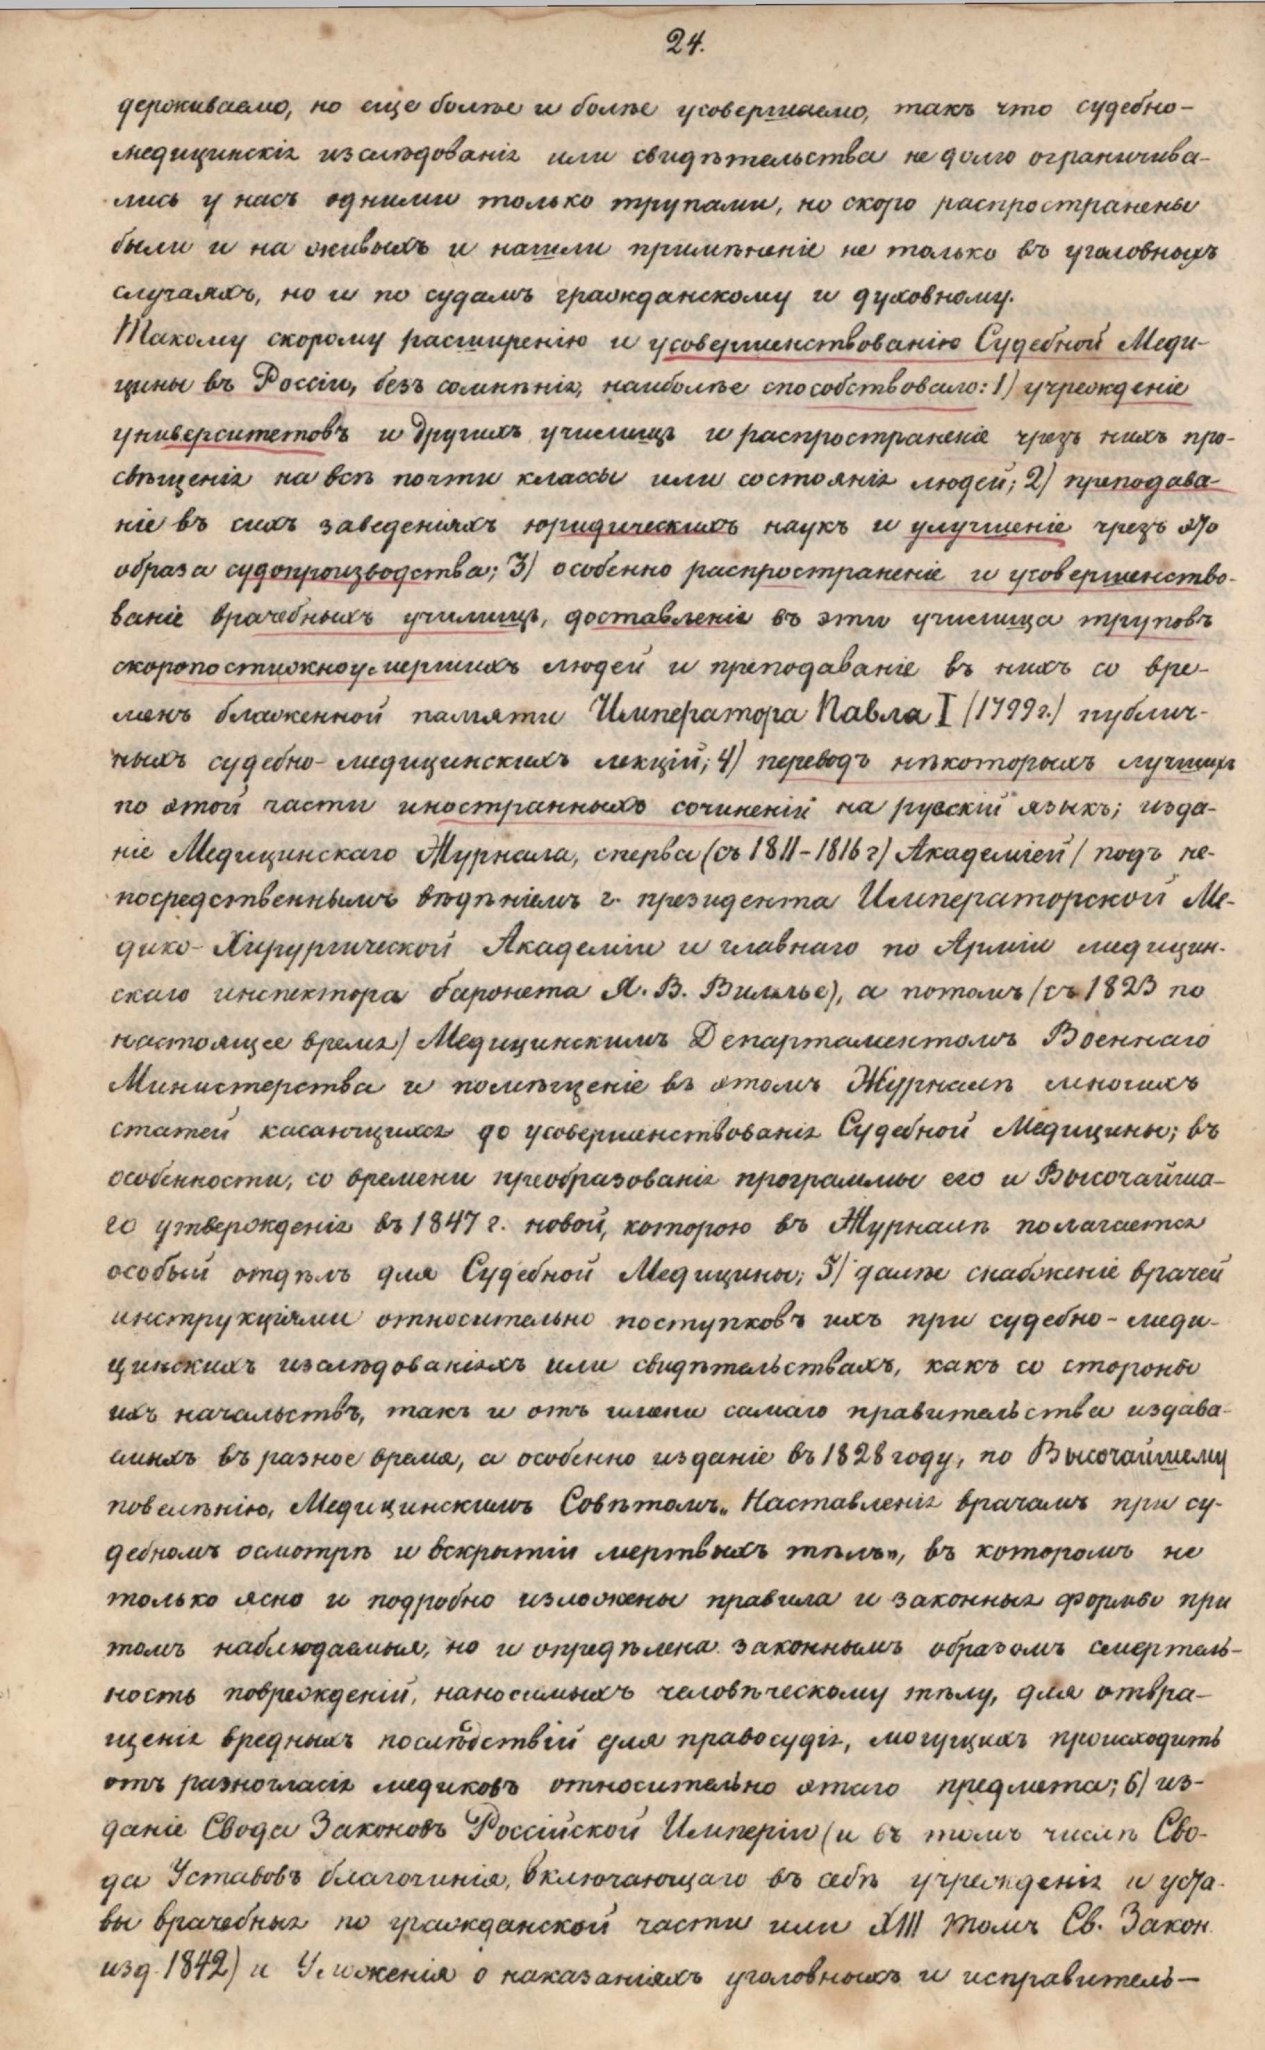 24.
держиваемо, но еще болѣе и болѣе усовершаемо, такъ что судебно-
медицинскія изслѣдованія или свидѣтельства не долго ограничива-
лись у насъ одними только трупами, но скоро распространены
были и на живыхъ и нашли примѣненіе не только въ уголовныхъ
случаяхъ, но и по судамъ гражданскому и духовному.
Такому скорому расширенію и усовершенствованію Судебной Меди-
цины въ Россіи, безъ сомнѣнія, наиболѣе способствовало: 1) учрежденіе
университетовъ и другихъ училищъ и распространеніе чрезъ нихъ про-
свѣщенія на всѣ почти классы или состоянія людей; 2) преподава-
ніе въ сихъ заведеніяхъ юридическихъ наукъ и улучшеніе чрезъ это
образа судопроизводства; 3) особенно распространеніе и усовершенство-
ваніе врачебныхъ училищъ, доставленіе въ эти училища труповъ
скоропостижноумершихъ людей и преподаваніе въ нихъ со вре-
менъ блаженной памяти Императора Павла I (1799 г.) публич-
ныхъ судебно-медицинскихъ лекцій; 4) переводъ нѣкоторыхъ лучшихъ
по этой части иностранныхъ сочиненій на русскій языкъ; изда-
ніе Медицинскаго Журнала, сперва (съ 1811-1816 г) Академіей (подъ не-
посредственнымъ вѣдѣніемъ г. президента Императорской Ме-
дико-Хирургической Академіи и главнаго по Арміи медицин-
скаго инспектора баронета Я. В. Вилліе), а потомъ (съ 1823 по
настоящее время) Медицинскимъ Департаментомъ Военнаго
Министерства и помѣщеніе въ этомъ Журналѣ многихъ
статей касающихся до усовершенствованія Судебной Медицины; въ
особенности, со времени преобразованія программы его и Высочайша-
го утвержденія въ 1847 г. новой, которою въ Журналѣ полагается
особый отдѣлъ для Судебной Медицины; 5) далѣе снабженіе врачей
инструкціями относительно поступковъ ихъ при судебно-меди-
цинскихъ изслѣдованіяхъ или свидѣтельствахъ, какъ со стороны
ихъ начальствъ, такъ и отъ имени самаго правительства издава-
емыхъ въ разное время, а особенно изданіе въ 1828 году, по Высочайшему
повелѣнію, Медицинскимъ Совѣтомъ „Наставленія врачамъ при су-
дебномъ осмотрѣ и вскрытіи мертвыхъ тѣлъ", въ которомъ не
только ясно и подробно изложены правила и законныя формы при
томъ наблюдаемыя, но и опредѣлена законнымъ образомъ смертель-
ность поврежденій, наносимыхъ человѣческому тѣлу, для отвра-
щенія вредныхъ послѣдствій для правосудія, могущихъ происходить
отъ разногласія медиковъ относительно этаго предмета; 6) из-
даніе Свода Законовъ Россійской Имперіи (и въ томъ числѣ Сво-
да Уставовъ благочинія, включающаго въ себѣ учрежденія и уста-
вы врачебныя по гражданской части или XIII томъ Св. Закон.
изд. 1842) и Уложенія о наказаніяхъ уголовныхъ и исправитель-